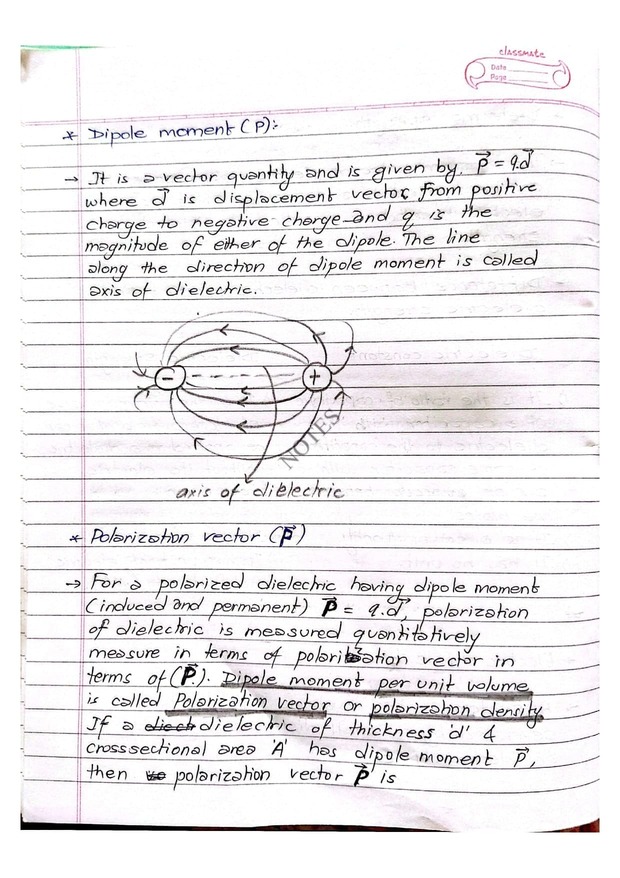 classmate
Date
Page
* Dipole moment (P):-
→ It is a vector quantity and is given by. P⃗ = q.d⃗
where d⃗ is displacement vector from positive
charge to negative charge and q is the
magnitude of either of the dipole. The line
along the direction of dipole moment is called
axis of dielectric.
- +
NOTES
axis of dielectric
* Polarization vector (P⃗)
→ For a polarized dielectric having dipole moment
(induced and permanent) P⃗ = q.d⃗, polarization
of dielectric is measured quantitatively
measure in terms of polarization vector in
terms of (P⃗.). Dipole moment per unit volume
is called Polarization vector or polarization density.
If a dielectric of thickness 'd' &
crosssectional area 'A' has dipole moment P⃗,
then polarization vector P⃗ is